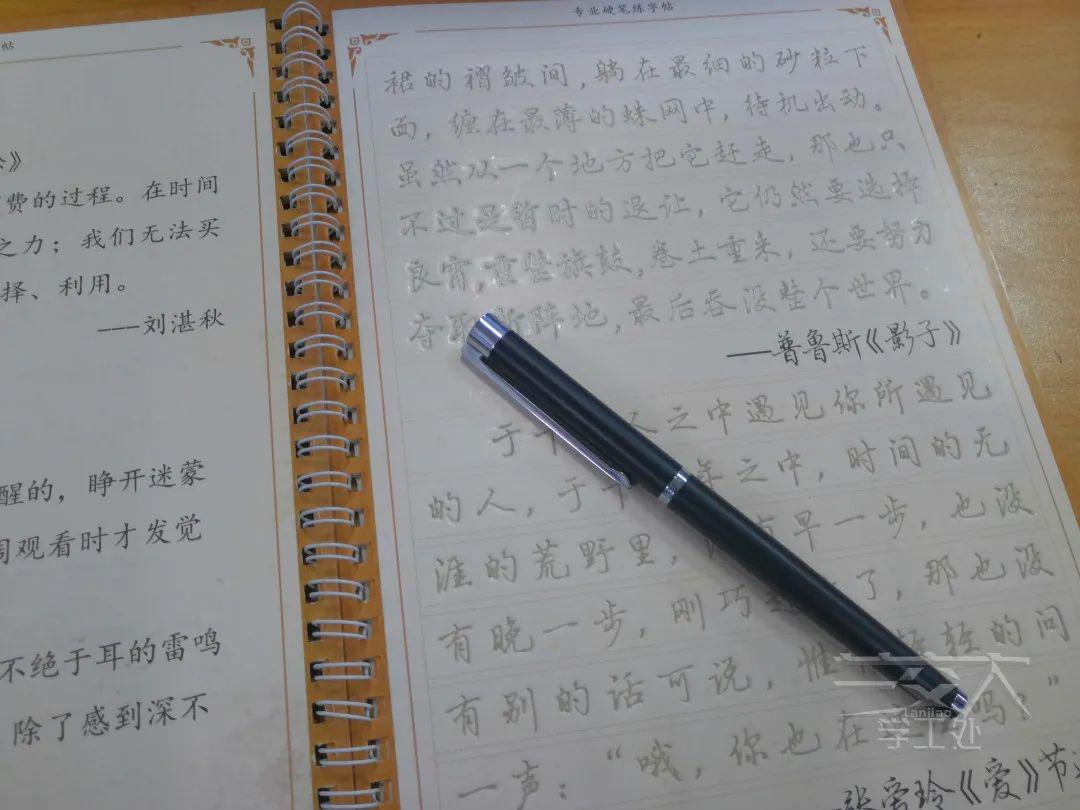 帖
》
费的过程。在时间
之力；我们无法买
择、利用。
——刘湛秋
醒的，睁开迷蒙
周观看时才发觉
不绝于耳的雷鸣
除了感到深不
专业硬笔练字帖
裙的褶皱间，躺在最细的砂粒下
面，缠在最薄的蛛网中，待机出动。
虽然从一个地方把它赶走，那也只
不过是暂时的退让，它仍然要选择
良宵，重整旗鼓，卷土重来，还要努力
夺取新阵地，最后吞没整个世界。
——普鲁斯《影子》
于千人之中遇见你所遇见
的人，于千年之中，时间的无
涯的荒野里，有早一步，也没
有晚一步，刚巧了，那也没
有别的话可说，惟轻轻的问
一声：“哦，你也在吗？”
张爱玲《爱》节
兰交大
lanjiao
学工处